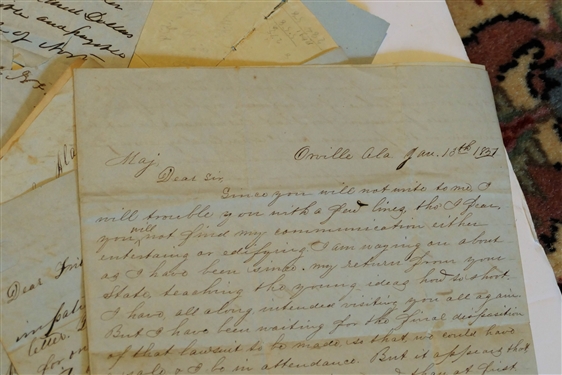 Orville Ala Jan. 18th 1857
Maj.
Dear Sir,
Since you will not write to me, I
will trouble you with a few lines, tho I fear
you will not find my communication either
entertaing or edifying I am waying on about
as I have been since my return from your
State, teaching the young ideas how to shoot
I have, all along intended visiting you all again
But I have been waiting for the final disposition
of that lawsuit to be made so that we could have
& I be in attendance. But it appears that
than at first
Dear
letter.
for